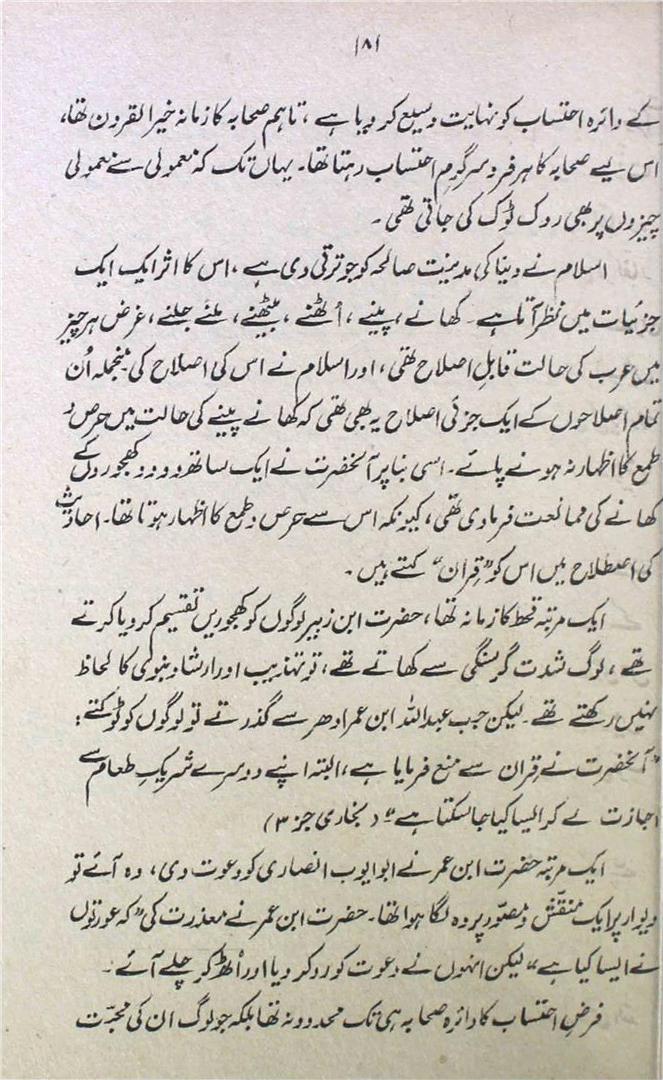 ۱۸۱
کے دائرہ احتساب کو نہایت وسیع کر دیا ہے ، تاہم صحابہ کا زمانہ خیر القرون تھا،
اس لیے صحابہ کا ہر فرد سرگرم احتساب رہتا تھا۔ یہاں تک کہ معمولی سے معمولی
چیزوں پر بھی روک ٹوک کی جاتی تھی ۔
اسلام نے دنیا کی مدنیت صالحہ کو جو ترقی دی ہے ، اس کا اثر ایک ایک
جزئیات میں نظر آتا ہے ۔ کھانے ، پینے ، اُٹھنے ، بیٹھنے ، ملنے جلنے ، غرض ہر چیز
میں عرب کی حالت قابلِ اصلاح تھی ، اور اسلام نے اس کی اصلاح کی منجملہ اُن
تمام اصلاحوں کے ایک جزئی اصلاح یہ بھی تھی کہ کھانے پینے کی حالت میں حرص و
طمع کا اظہار نہ ہونے پائے ۔ اسی بنا پر آنحضرت نے ایک ساتھ دو دو کھجوروں کے
کھانے کی ممانعت فرما دی تھی ، کیونکہ اس سے حرص و طمع کا اظہار ہوتا تھا۔ احادیث
کی اصطلاح میں اس کو ”قِران“ کہتے ہیں ۔
ایک مرتبہ قحط کا زمانہ تھا ، حضرت ابن زبیر لوگوں کو کھجوریں تقسیم کر دیا کرتے
تھے ، لوگ شدت گرسنگی سے کھاتے تھے ، تو تہذیب اور ارشاد نبوی کا لحاظ
نہیں رکھتے تھے ۔ لیکن جب عبداللہ ابن عمر ادھر سے گذرتے تو لوگوں کو ٹوکتے:
”آنحضرت نے قِران سے منع فرمایا ہے ، البتہ اپنے دوسرے شریکِ طعام سے
اجازت لے کر ایسا کیا جا سکتا ہے“ (بخاری جز ۳)
ایک مرتبہ حضرت ابن عمر نے ابو ایوب انصاری کو دعوت دی ، وہ آئے تو
دیوار پر ایک منقّش و مصوّر پردہ لگا ہوا تھا۔ حضرت ابن عمر نے معذرت کی ”کہ عورتوں
نے ایسا کیا ہے“ لیکن انہوں نے دعوت کو رد کر دیا اور اُٹھ کر چلے آئے ۔
فرضِ احتساب کا دائرہ صحابہ ہی تک محدود نہ تھا بلکہ جو لوگ ان کی محبّت